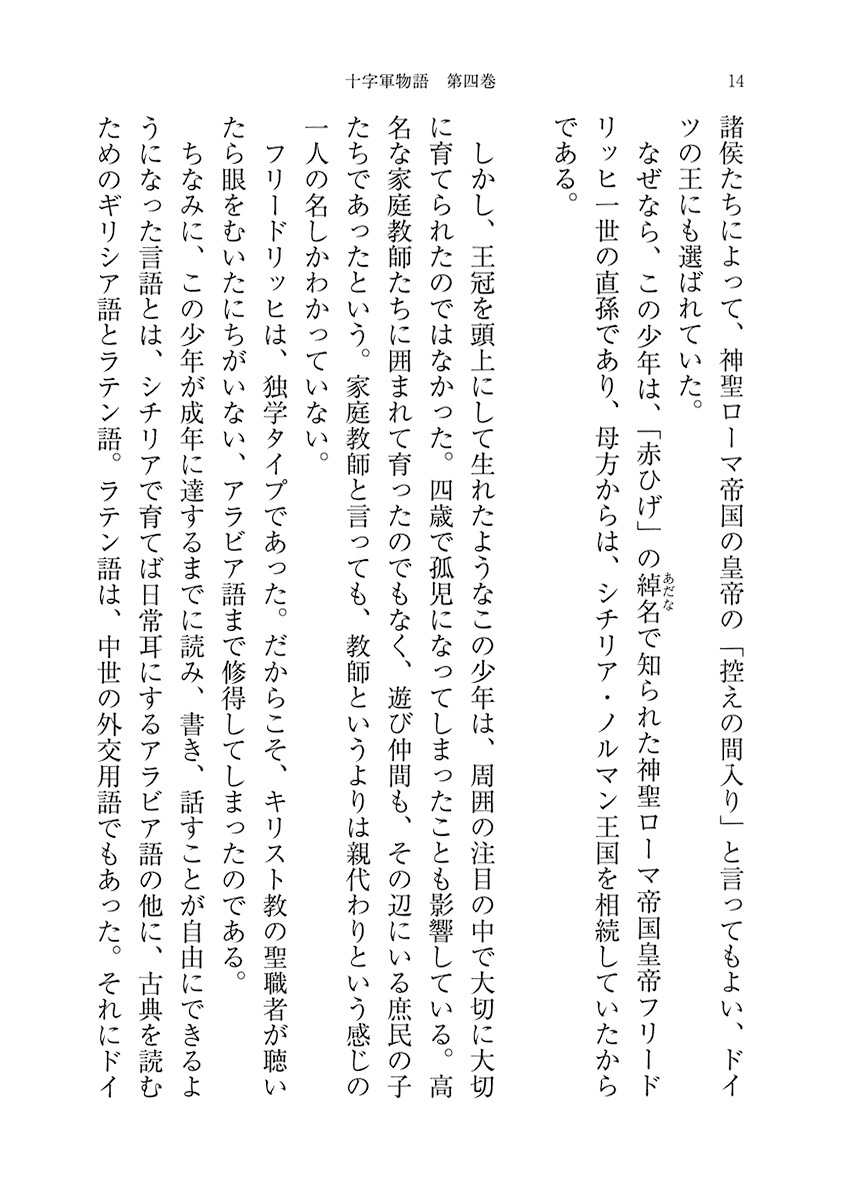 十字軍物語　第四巻
14
諸侯たちによって、神聖ローマ帝国の皇帝の「控えの間入り」と言ってもよい、ドイ
ツの王にも選ばれていた。
なぜなら、この少年は、「赤ひげ」の綽名で知られた神聖ローマ帝国皇帝フリード
あだな
リッヒ一世の直孫であり、母方からは、シチリア・ノルマン王国を相続していたから
である。
しかし、王冠を頭上にして生れたようなこの少年は、周囲の注目の中で大切に大切
に育てられたのではなかった。四歳で孤児になってしまったことも影響している。高
名な家庭教師たちに囲まれて育ったのでもなく、遊び仲間も、その辺にいる庶民の子
たちであったという。家庭教師と言っても、教師というよりは親代わりという感じの
一人の名しかわかっていない。
フリードリッヒは、独学タイプであった。だからこそ、キリスト教の聖職者が聴い
たら眼をむいたにちがいない、アラビア語まで修得してしまったのである。
ちなみに、この少年が成年に達するまでに読み、書き、話すことが自由にできるよ
うになった言語とは、シチリアで育てば日常耳にするアラビア語の他に、古典を読む
ためのギリシア語とラテン語。ラテン語は、中世の外交用語でもあった。それにドイ